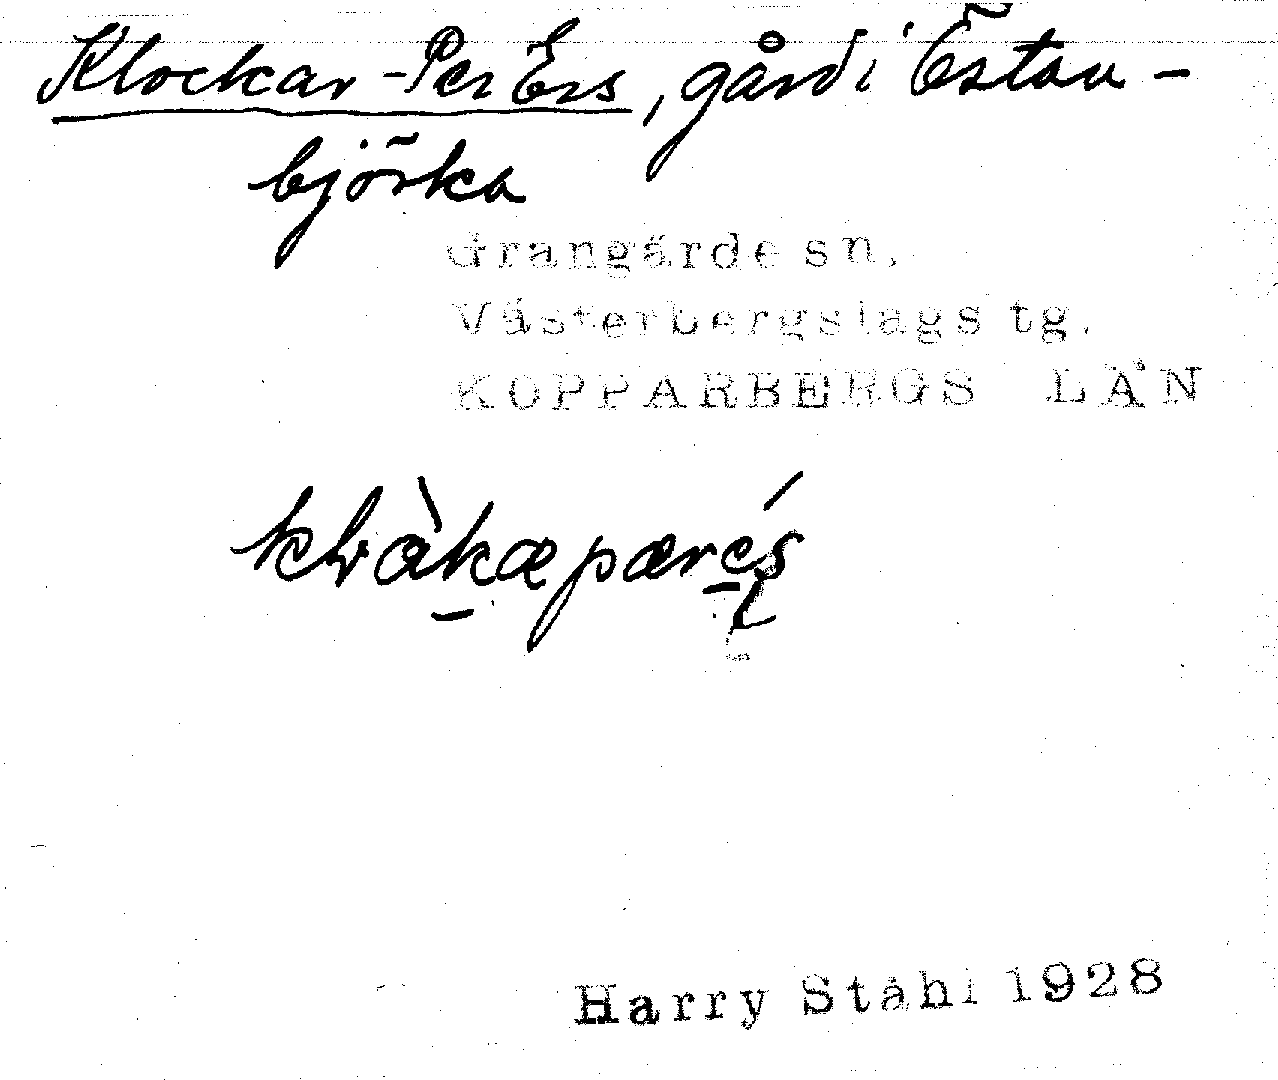 Klockar-Per Ers, gård i Östan-
björka
Grangärde sn.
Västerbergslags tg.
KOPPARBERGS LÄN
Harry Ståhl 1928